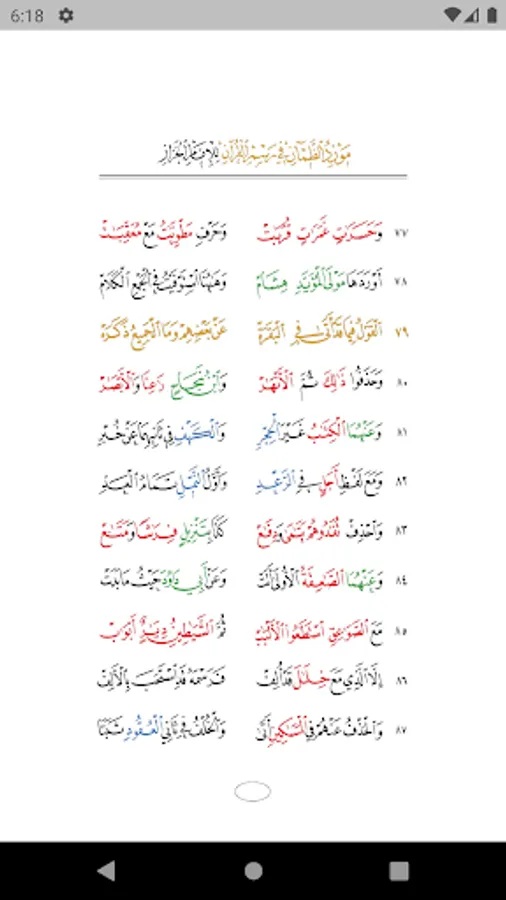 6:18
مَوْرِدُ الظَّمْآنِ فِي رَسْمِ الْقُرْآنِ لِلْإِمَامِ الْخَرَّازِ
٧٧ وَحَسَرَاتٍ غَمَرَاتٍ قُرُبَاتْ وَحَرْفِ مَطْوِيَّاتٌ مَعْ مُعَقِّبَاتْ
٧٨ أَوْرَدَهَا مَوْلَى الْمُؤَيَّدِ هِشَامْ وَهَاهُنَا اسْتَوْفَيْتُ فِي الْجَمْعِ الْكَلَامْ
٧٩ اَلْقَوْلُ فِيمَا قَدْ أَتَى فِي الْبَقَرَهْ عَنْ بَعْضِهِمْ وَمَا الْجَمِيعُ ذَكَرَهْ
٨٠ وَحَذَفُوا ذَٰلِكَ ثُمَّ الْأَنْهَٰرْ وَابْنُ نَجَاحٍ رَٰعِنَا وَالْأَبْصَٰرْ
٨١ وَعَنْهُمَا الْكِتَٰبُ غَيْرَ الْحِجْرِ وَالْكَهْفِ فِي ثَانِيهِمَا عَنْ خُبْرِ
٨٢ وَمَعَ لَفْظِ أَجَلٍ فِي الرَّعْدِ وَأَوَّلُ النَّمْلِ تَمَامُ الْعَدِّ
٨٣ وَاحْذِفْ تُفَٰدُوهُمْ يَتَٰمَىٰ وَدِفَٰعْ كَذَا بِتَنْزِيلٍ فِرَٰشًا وَمَتَٰعْ
٨٤ وَعَنْهُمَا الصَّٰعِقَةُ الْأُولَى أَتَتْ وَعَنْ أَبِي دَاوُدَ حَيْثُ مَا بَدَتْ
٨٥ مَعَ الصَّوَٰعِقِ اسْتَطَٰعُوا الْأَلْبَٰبْ ثُمَّ الشَّيَٰطِينُ دِيَٰرٌ أَبْوَٰبْ
٨٦ إِلَّا الَّذِي مَعَ خِلَٰلَ قَدْ أُلِفْ فَرَسْمُهُ قَدِ اسْتُحِبَّ بِالْأَلِفْ
٨٧ وَالْحَذْفُ عَنْهُمْ فِي الْمَسَٰكِينِ أَتَى وَالْخُلْفُ فِي ثَانِي الْعُقُودِ ثَبَتَا